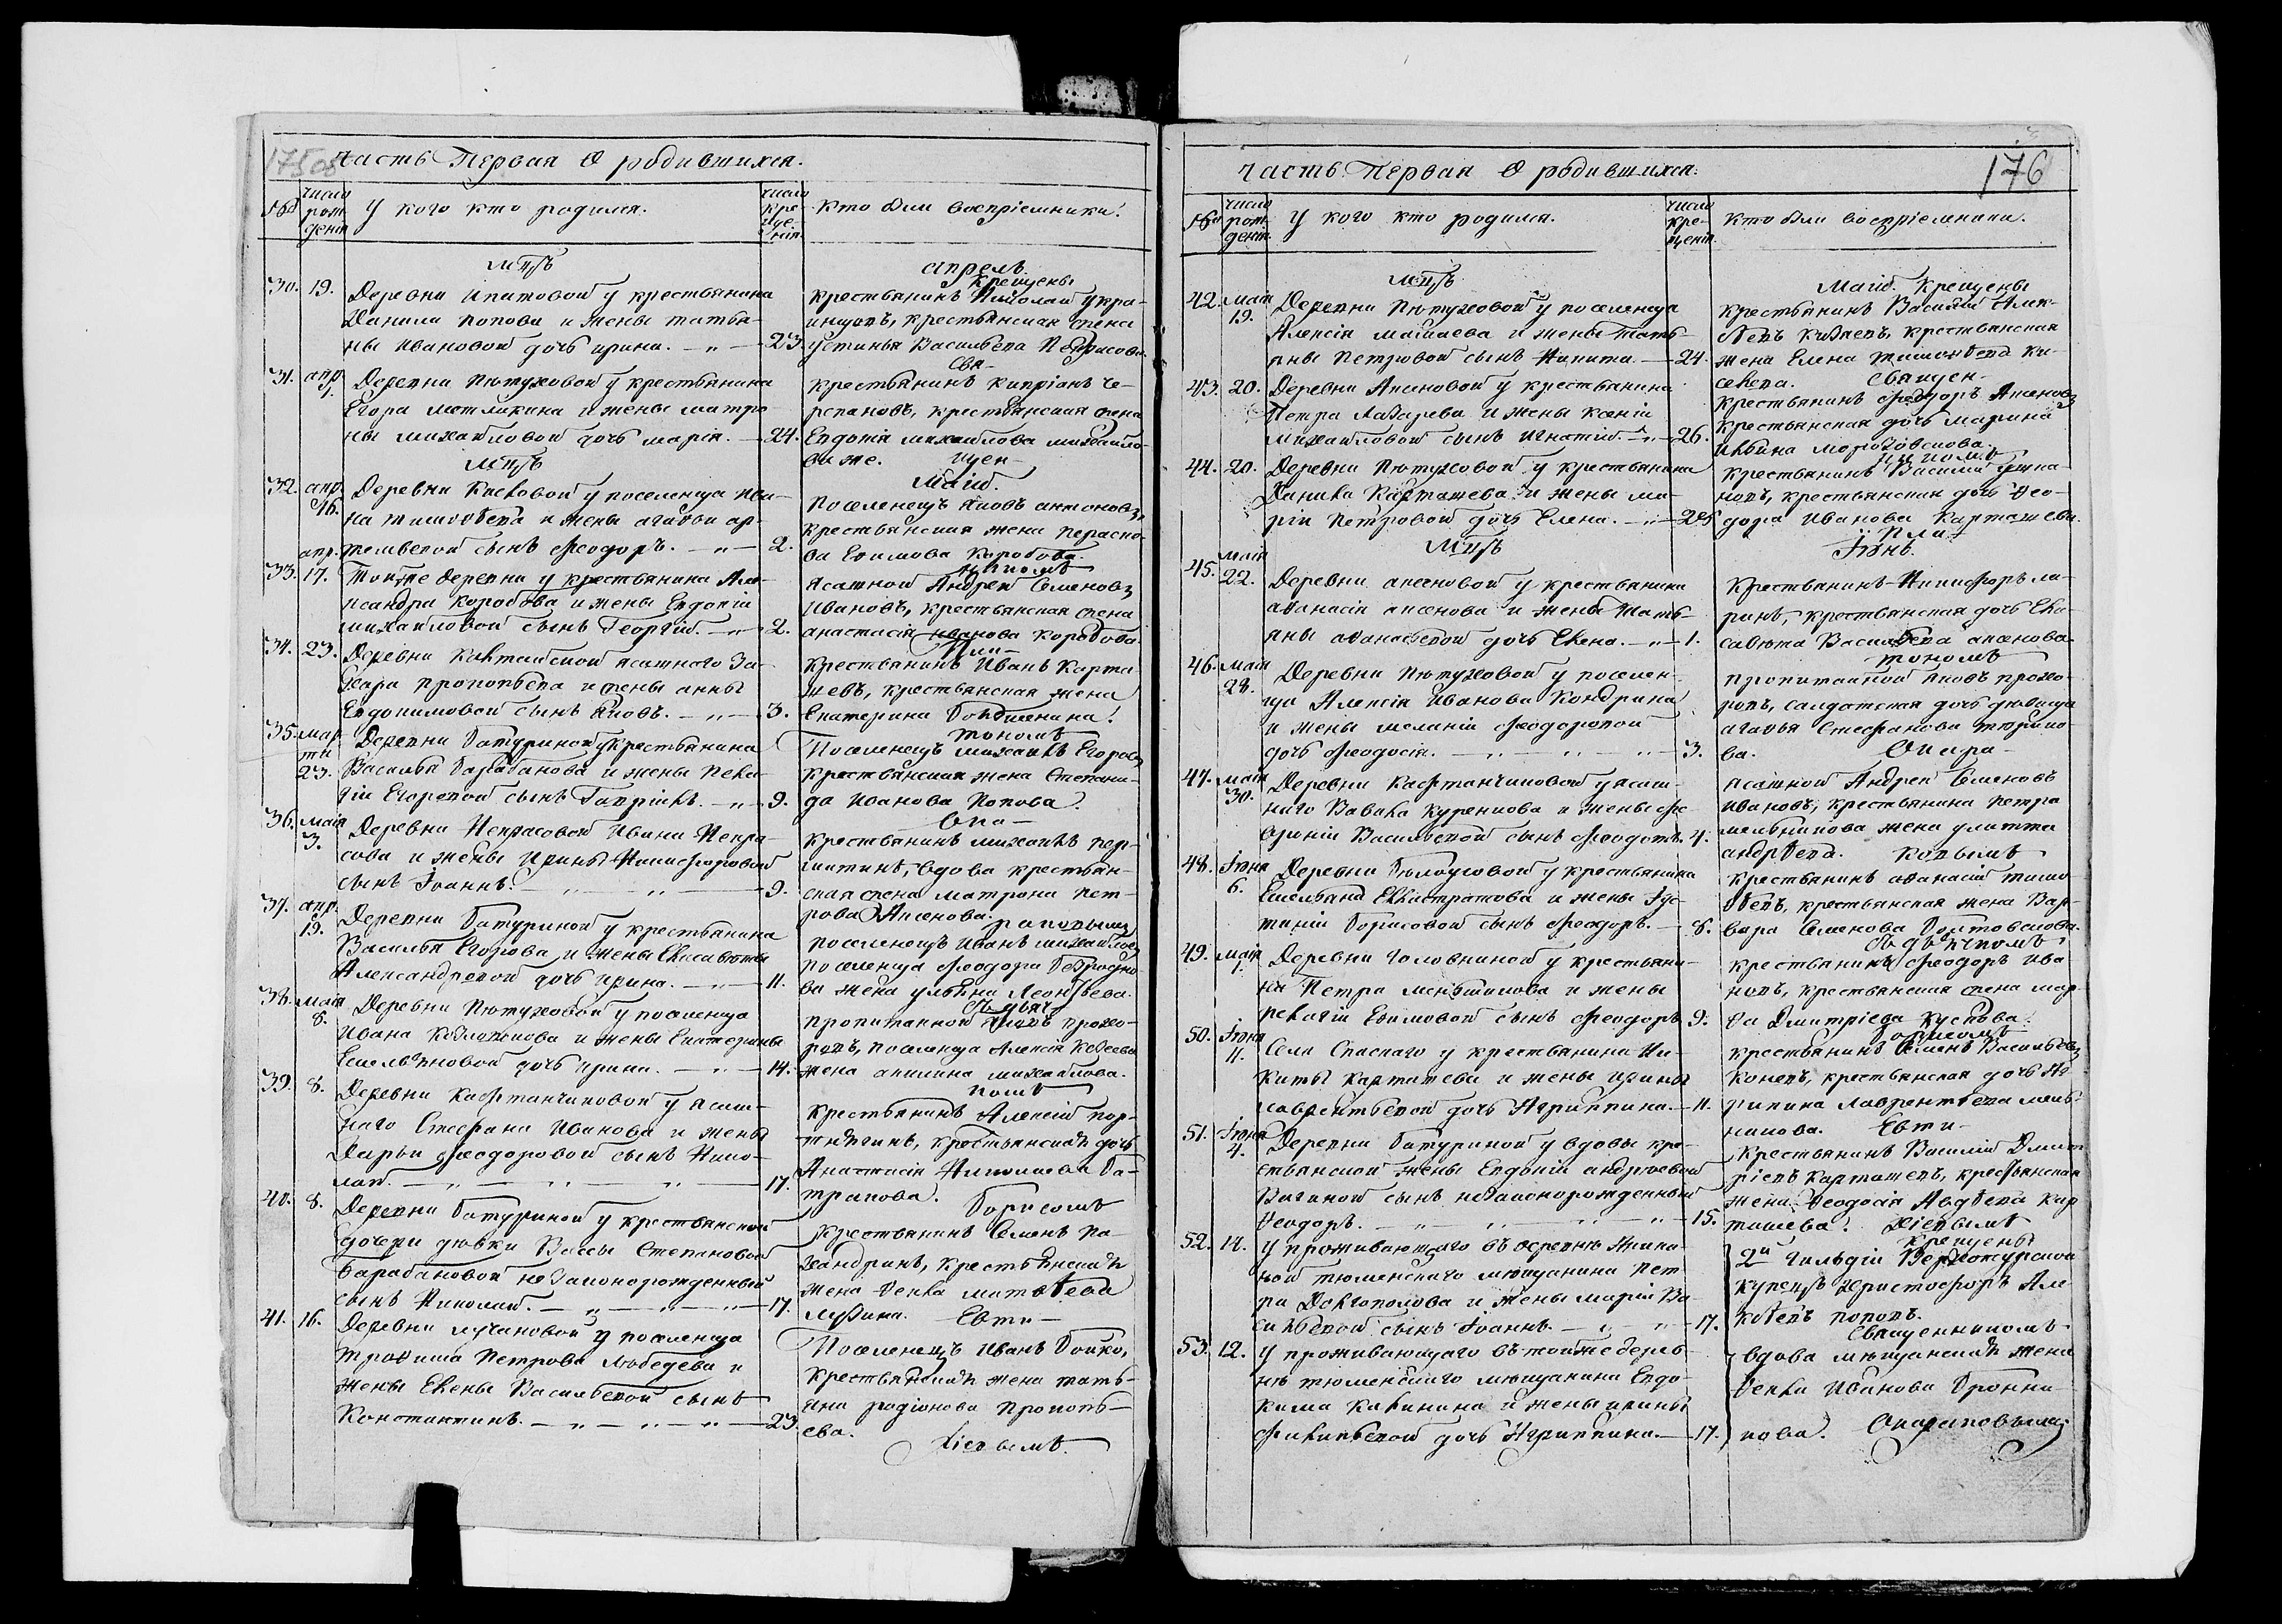 175 об
Часть Первая О родившихся.
№
число рождені
У кого кто родился.
число крещенія
Кто были воспріемники.
Мцъ
Апрель
Крещены
30. 19. Деревни Ипатовой у крестьянина
Данила Попова и жены Татья-
ны Ивановой дочь Ирина. — „ — 23.
крестьянинъ Николай Укра-
инцовъ, крестьянская жена
Устинья Васильева Некрасова.
Свя-
31. апр. Деревни Пютуховой у крестьянина
Егора Метлякина и жены Матре-
ны Михайловой дочь Марія. — 24.
крестьянинъ Кипріанъ Че-
репановъ, крестьянская жена
Евдокія Михайлова Михайло-
ва же. щен-
Мцъ
Май.
32. апр. 16. Деревни Киселовой у поселенца Ива-
на Тимофѣева и жены Агафьи Ар-
темьевой сынъ Феодоръ. — „ — 2.
Поселенецъ Яковъ Антоновъ,
крестьянская жена Параско-
ва Ефимова Коробова.
никомъ
33. апр. 17. Тойже деревни у крестьянина Але-
ксандра Коробова и жены Евдокіи
Михайловой сынъ Георгій. — „ — 2.
Ясашной Андрей Семеновъ
Ивановъ, крестьянская жена
Анастасія Иванова Коробова.
34. 23. Деревни Калтайской ясашного За-
хара Прокопьева и жены Анны
Евдокимовой сынъ Яковъ. — „ — 3.
крестьянинъ Иванъ Карта-
шевъ, крестьянская жена
Екатерина
35. марта 23. Деревни Батуриной у крестьянина
Василья Барабанова и жены Пела-
гіи Егоревой сынъ Гавріилъ. — „ — 9.
Поселенецъ Михаилъ Егоровъ
крестьянская жена Степани-
да Иванова Попова.
36. Маія 3. Деревни Некрасовой Ивана Некра-
сова и жены Ирины Никифоровой
сынъ Іоаннъ. — „ — „ — 9.
крестьянинъ Михаилъ Пер-
митинъ, вдова крестьян-
ская жена Матрона Пет-
рова Аксенова.
37. апр. 19. Деревни Батуриной у крестьянина
Василья Егорова и жены Елисаветы
Александровой дочь Ирина. — „ — 11.
поселенецъ Иванъ Михайловъ
поселенца Феодора
ва жена Ульяна Леонтьева.
38. Маія 8. Деревни Пютуховой у поселенца
Ивана и жены Екатерины
Емельяновой дочь Ирина. — „ — 14.
пропитанной Яковъ Прохо-
ровъ, поселенца Алексія
жена Акилина Михайлова.
39. 8. Деревни Кафтанчиковой у ясаш-
наго Стефана Иванова и жены
Дарьи Феодоровой сынъ Нико-
лай. — „ — „ — „ — 17.
крестьянинъ Алексій Пор-
тнягинъ, крестьянская дочь
Анастасія Николаева Ба-
тракова.
Борисомъ
40. 8. Деревни Батуриной у крестьянской
дочери девки Вассы Степановой
Барабановой незаконорожденный
сынъ Николай. — „ — „ — „ — 17.
крестьянинъ Семенъ Ка-
жена Ѳекла Матвѣева
Евти-
41. 16. Деревни Лучановой у поселенца
Трофима Петрова Лебедева и
жены Елены Васильевой сынъ
Константинъ. — „ — „ — „ — 23.
Поселенецъ Иванъ Бойко,
крестьянская жена Тать-
яна Родіонова Прокопь-
ева.
хіевымъ.
Часть Первая О родившихся:
176
№
число рожденія
У кого кто родился.
число крещенія
Кто были воспріемники.
Мцъ
Маій. Крещены
42. Маія 19. Деревни Пютуховой у поселенца
Алексія и жены Тать-
яны Петровой сынъ Никита. — 24.
крестьянинъ Василій Алек-
сѣевъ, крестьянская
жена Елена Тимофѣева Ки-
селева. Священ-
43. 20. Деревни Аксеновой у крестьянина
Петра Лазарева и жены Ксеніи
Михайловой сынъ Игнатій. — „ — 26.
крестьянинъ Феодоръ Аксеновъ
крестьянская дочь Марина
Ильина
никомъ
44. 20. Деревни Пютуховой у крестьянина
Данила Карташева и жены Ма-
ріи Петровой дочь Елена. — „ — 28
крестьянинъ Василій
новъ, крестьянская дочь Ѳео-
дора Иванова Карташева.
Мцъ
Іюнь.
45. Маія 22. Деревни Аксеновой у крестьянина
Афанасія Аксенова и жены Тать-
яны Афанасьевой дочь Елена. — „ — 1.
крестьянинъ Никифоръ Ла-
ринъ, крестьянская дочь Ели-
савета Васильева Аксенова.
46. Маія 28. Деревни Пютуховой у поселен-
ца Алексія Иванова Кондрина
и жены Меланіи Феодоровой
дочь Феодосія. „ — „ — „ — 3.
пропитанной Яковъ Прохо-
ровъ, салдатская дочь девица
Агафья Стефанова
ва.
47. Маія 30. Деревни Кафтанчиковой у ясаш-
наго Вавила Куренкова и жены Фе-
вроніи Васильевой сынъ Феодотъ. 4.
Ясашной Андрей Семеновъ
Ивановъ, крестьянина Петра
Мельникова жена Улитта
Андрѣева. ковымъ
48. Іюня 6. Деревни у крестьянина
Емельяна Елистратова и жены Іус-
тиніи Борисовой сынъ Феодоръ. — 8.
крестьянинъ Афанасій Тимо-
фѣевъ, крестьянская жена Вар-
вара Семенова
49. Маія 1. Деревни Головниной у крестьяни-
на Петра Меньшикова и жены
Пелагіи Ефимовой сынъ Феодоръ 9.
крестьянинъ Феодоръ Ива-
новъ, крестьянская жена Мар-
фа Дмитріева
50. Іюня 4. Села Спаскаго у крестьянина Ни-
киты Карташева и жены Ирины
Лаврентьевой дочь Агриппина. — 11.
крестьянинъ Семенъ Васильевъ
крестьянская дочь Аг-
рипина Лаврентьева Мель-
никова. Евти-
51. Іюня 4. Деревни Батуриной у вдовы кре-
стьянской жены Евдокіи Андреевой
Вагиной сынъ незаконорожденный
Ѳеодоръ. — „ — „ — „ — „ — 15.
крестьянинъ Василій Дмит-
ріевъ Карташевъ, крестьянская
жена Ѳеодосія Авдѣева Кар-
ташева. хіевымъ
Крещены
52. 14. У проживающаго въ деревнѣ Аники-
ной тюменскаго мѣщанина Пет-
ра Долгополова и жены Маріи Ва-
сильевой сынъ Іоаннъ. — „ — „ — 17.
2й Гильдіи Верхотурской
купецъ Христофоръ Але-
ксѣевъ Поповъ.
Священникомъ
53. 12. У проживающаго въ тойже дерев-
нѣ тюменскаго мѣщанина Евдо-
кима Калинина и жены Ирины
Филипьевой дочь Агриппина. — 17.
вдова мѣщанская жена
Ѳекла Иванова Бронни-
кова.